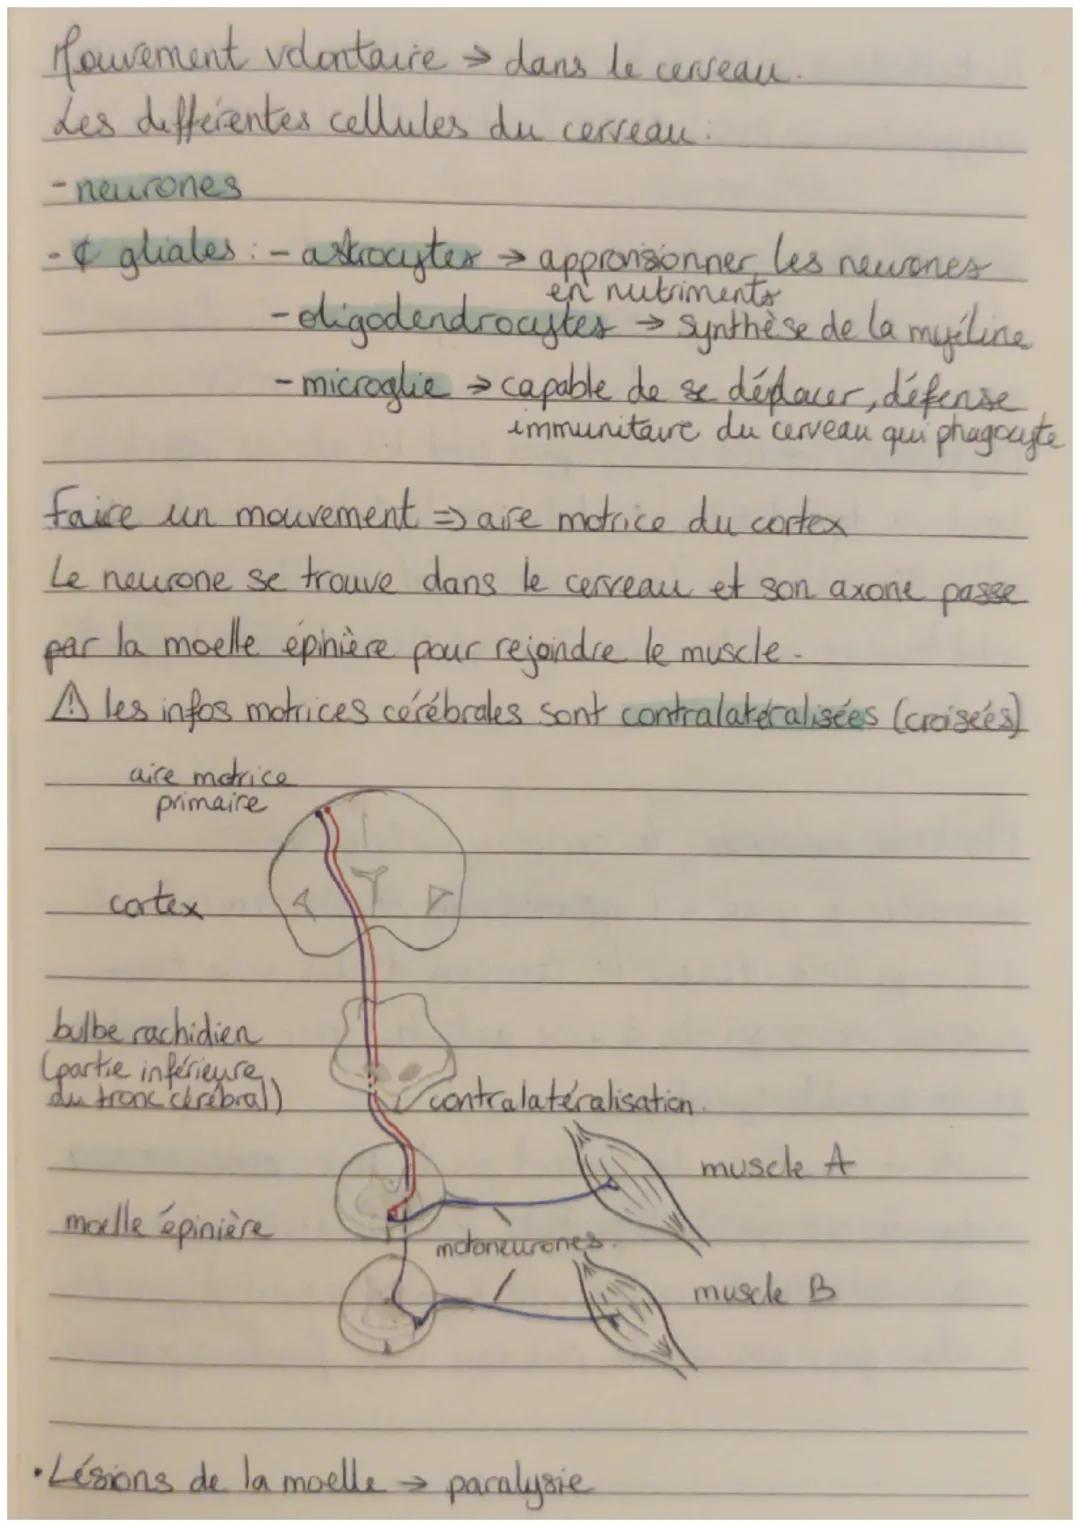 Mouvement volontaire → dans le cerveau.
Les différentes cellules du cerveau:
- neurones
- ¢ gliales : - astrocytes → approvisionner les neurones
en nutriments
- oligodendrocytes → synthèse de la myéline
- microglie → capable de se déplacer, défense
immunitaire du cerveau qui phagocyte
Faire un mouvement ⇒ aire motrice du cortex
Le neurone se trouve dans le cerveau et son axone passe
par la moelle épinière pour rejoindre le muscle.
⚠ les infos motrices cérébrales sont contralatéralisées (croisées)
aire motrice
primaire
cortex
bulbe rachidien
(partie inférieure
du tronc cérébral)
contralatéralisation.
muscle A
moelle épinière
motoneurones.
muscle B
• Lésions de la moelle → paralysie